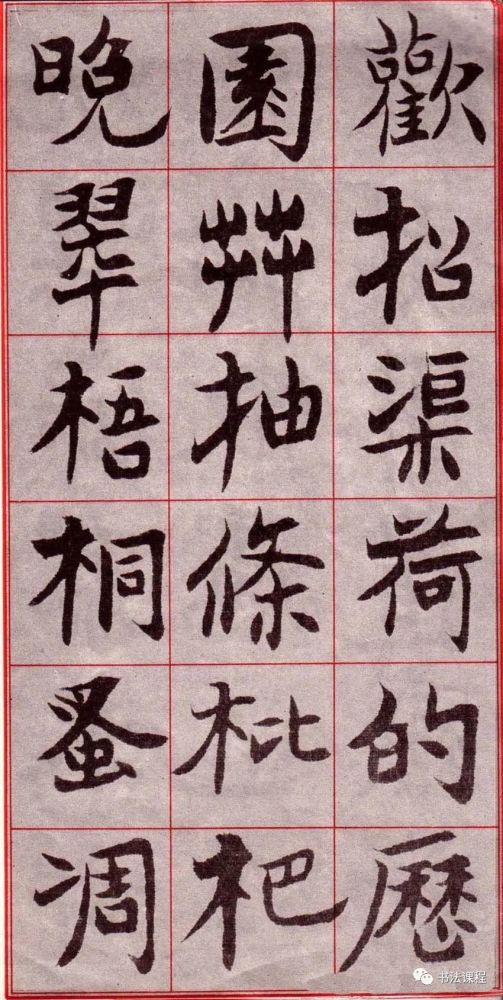 歡招渠荷的歷
園莽抽條枇杷
晚翠梧桐蚤凋
书法课程